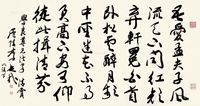 吾愛孟夫子風
流天下聞紅顏
棄軒冕白首
臥松雲醉月頻
中聖迷花不事
君高山安可仰
徒此揖清芬